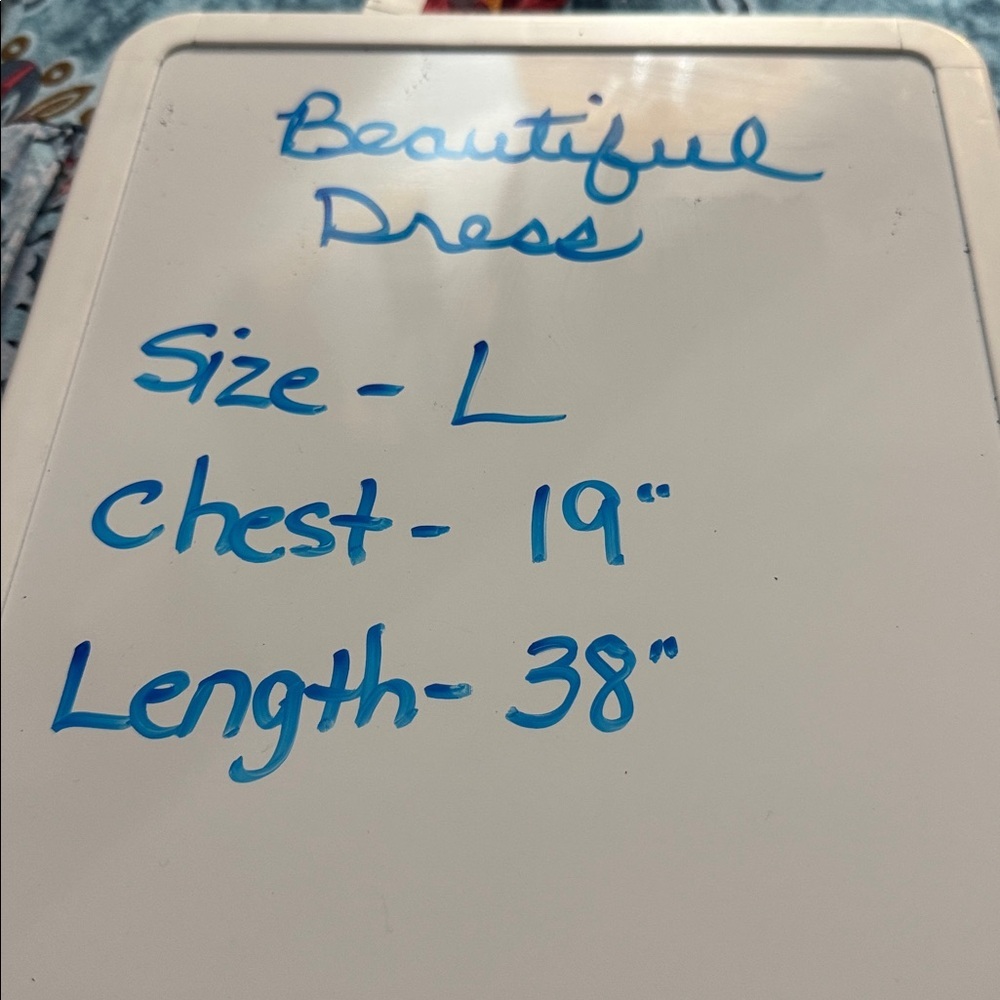 Beautiful
Dress
Size - L
Chest - 19"
Length - 38"